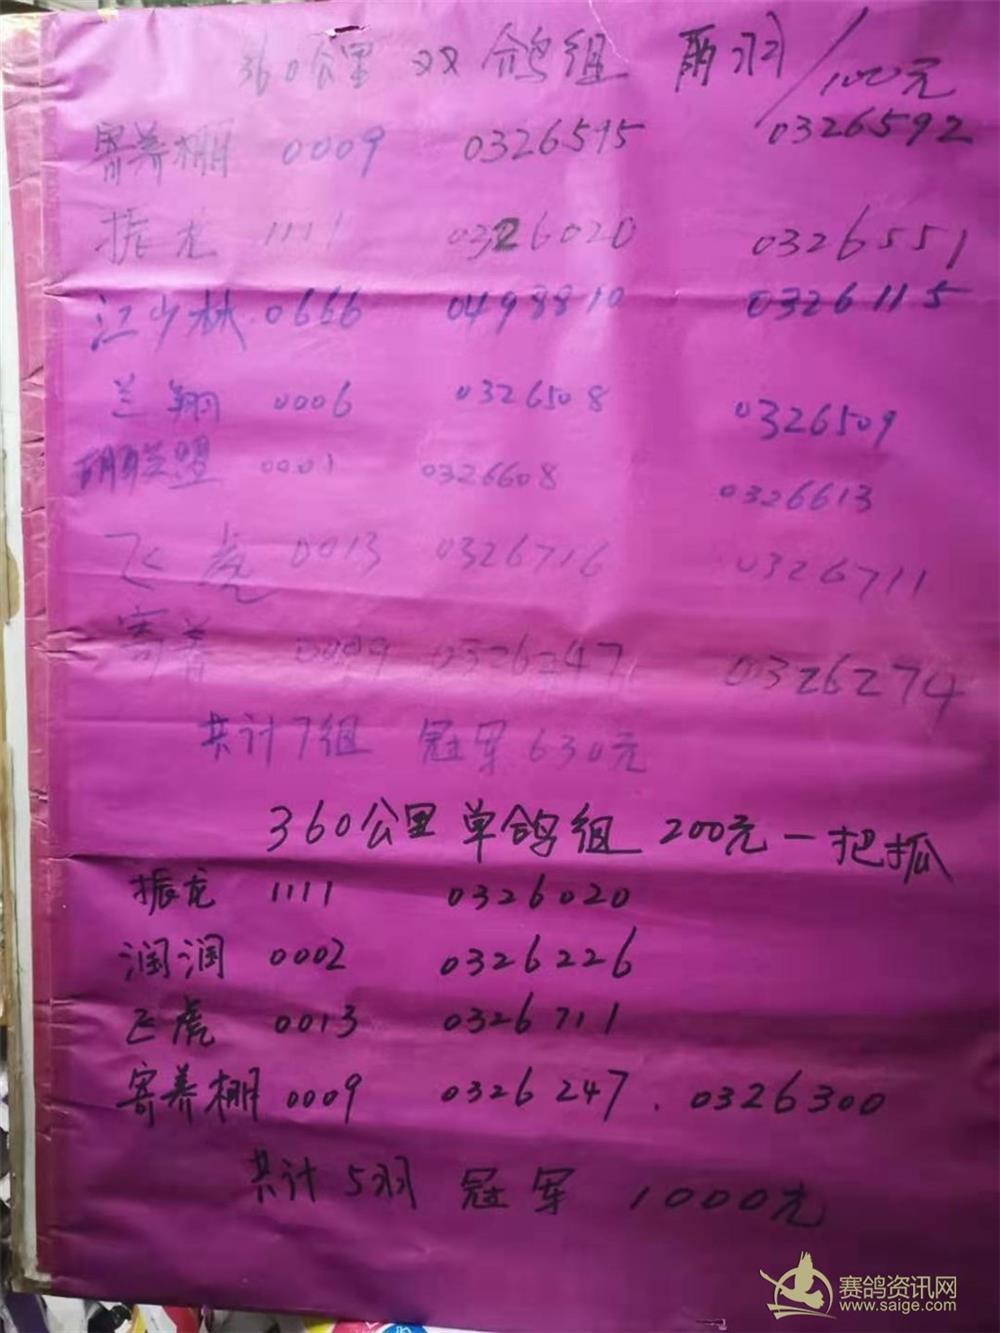 360公里 双鸽组 两羽/100元
寄养棚 0009 0326595 0326592
振龙 1111 0326020 0326551
江少林.0666 0498810 0326115
兰翔 0006 0326508 0326509
联盟 0001 0326608 0326613
飞虎 0013 0326716 0326711
寄养 0009 0326247 0326274
共计7组 冠军630元
360公里单鸽组 200元一把抓
振龙 1111 0326020
润润 0002 0326226
飞虎 0013 0326711
寄养棚 0009 0326247.0326300
共计5羽 冠军 1000元
赛鸽资讯网
www.saige.com